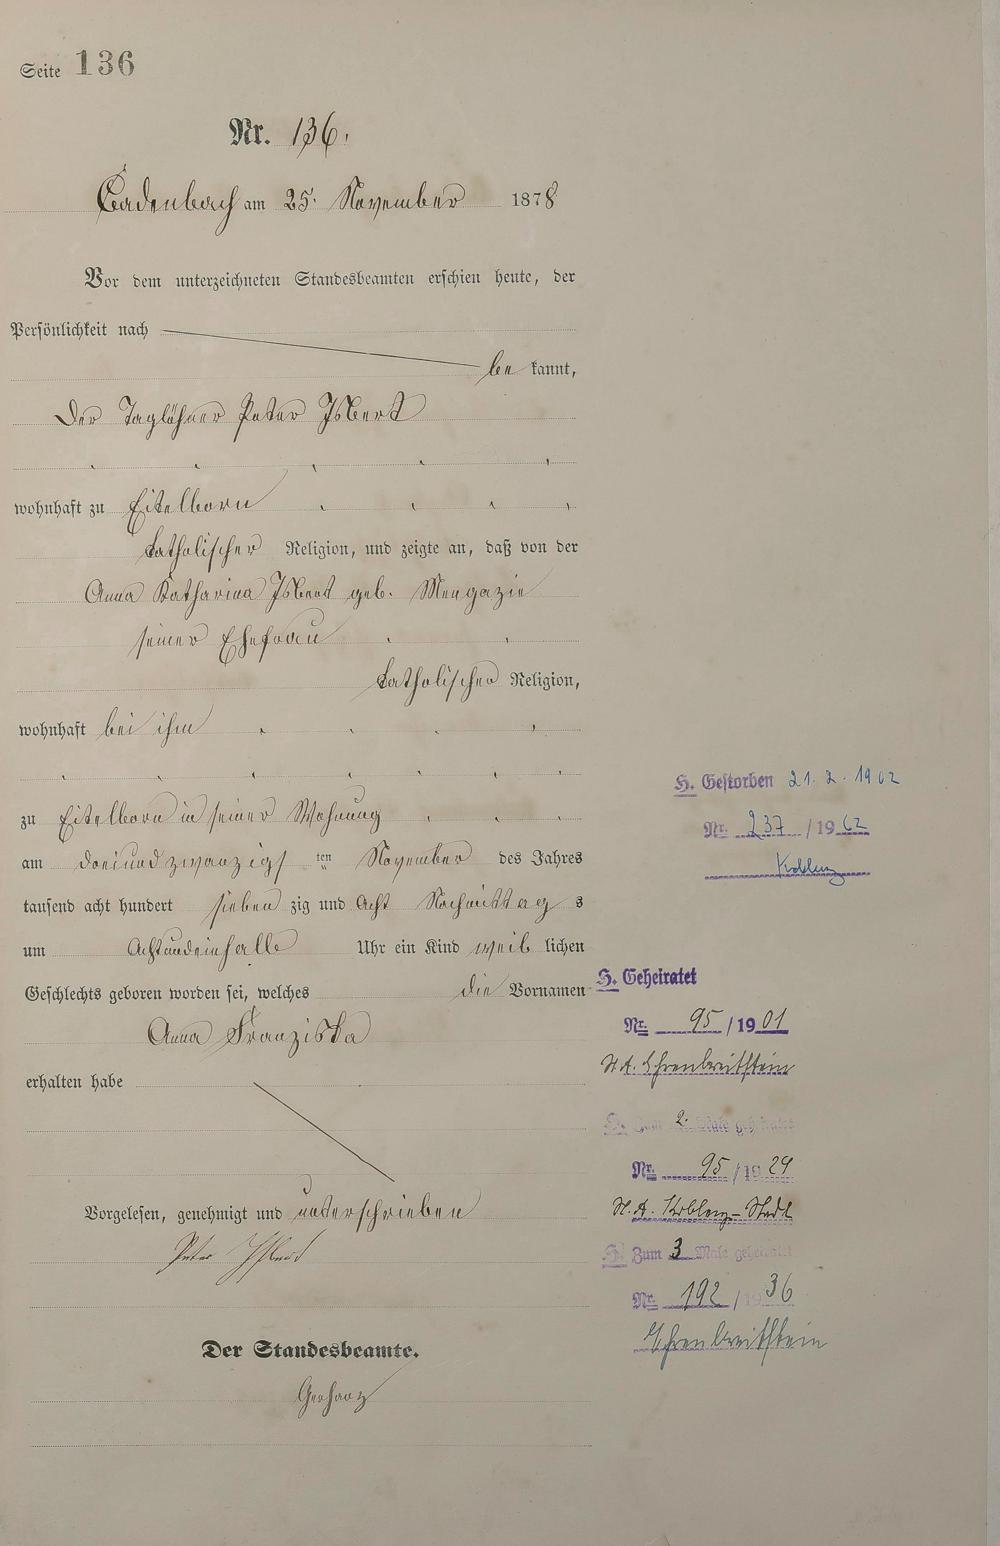 Seite 136
Nr. 136.
Cadenbach am 25. November 1878
Vor dem unterzeichneten Standesbeamten erschien heute, der
Persönlichkeit nach
be kannt,
der Taglöhner Peter Isbert
wohnhaft zu Eitelborn
katholischer Religion, und zeigte an, daß von der
Anna Katharina Isbert geb. Mengazie
seiner Ehefrau
katholischer Religion,
wohnhaft bei ihm
zu Eitelborn in seiner Wohnung
am dreiundzwanzigs ten November des Jahres
tausend acht hundert sieben zig und Acht Nachmittag s
um Achtundeinhalb Uhr ein Kind weib lichen
Geschlechts geboren worden sei, welches die Vornamen
Anna Franziska
erhalten habe
Vorgelesen, genehmigt und unterschrieben
Peter Isbert
Der Standesbeamte.
Gerharz
H. Gestorben 21.2.1962
Nr. 237 / 19 62
Koblenz
H. Geheiratet
Nr. 95 / 19 01
St. A. Ehrenbreitstein
H. Zum 2. Male geheiratet
Nr. 95 / 19 29
St. A. Koblenz-Stadt
H. Zum 3 Male geheiratet
Nr. 192 / 19 36
Ehrenbreitstein